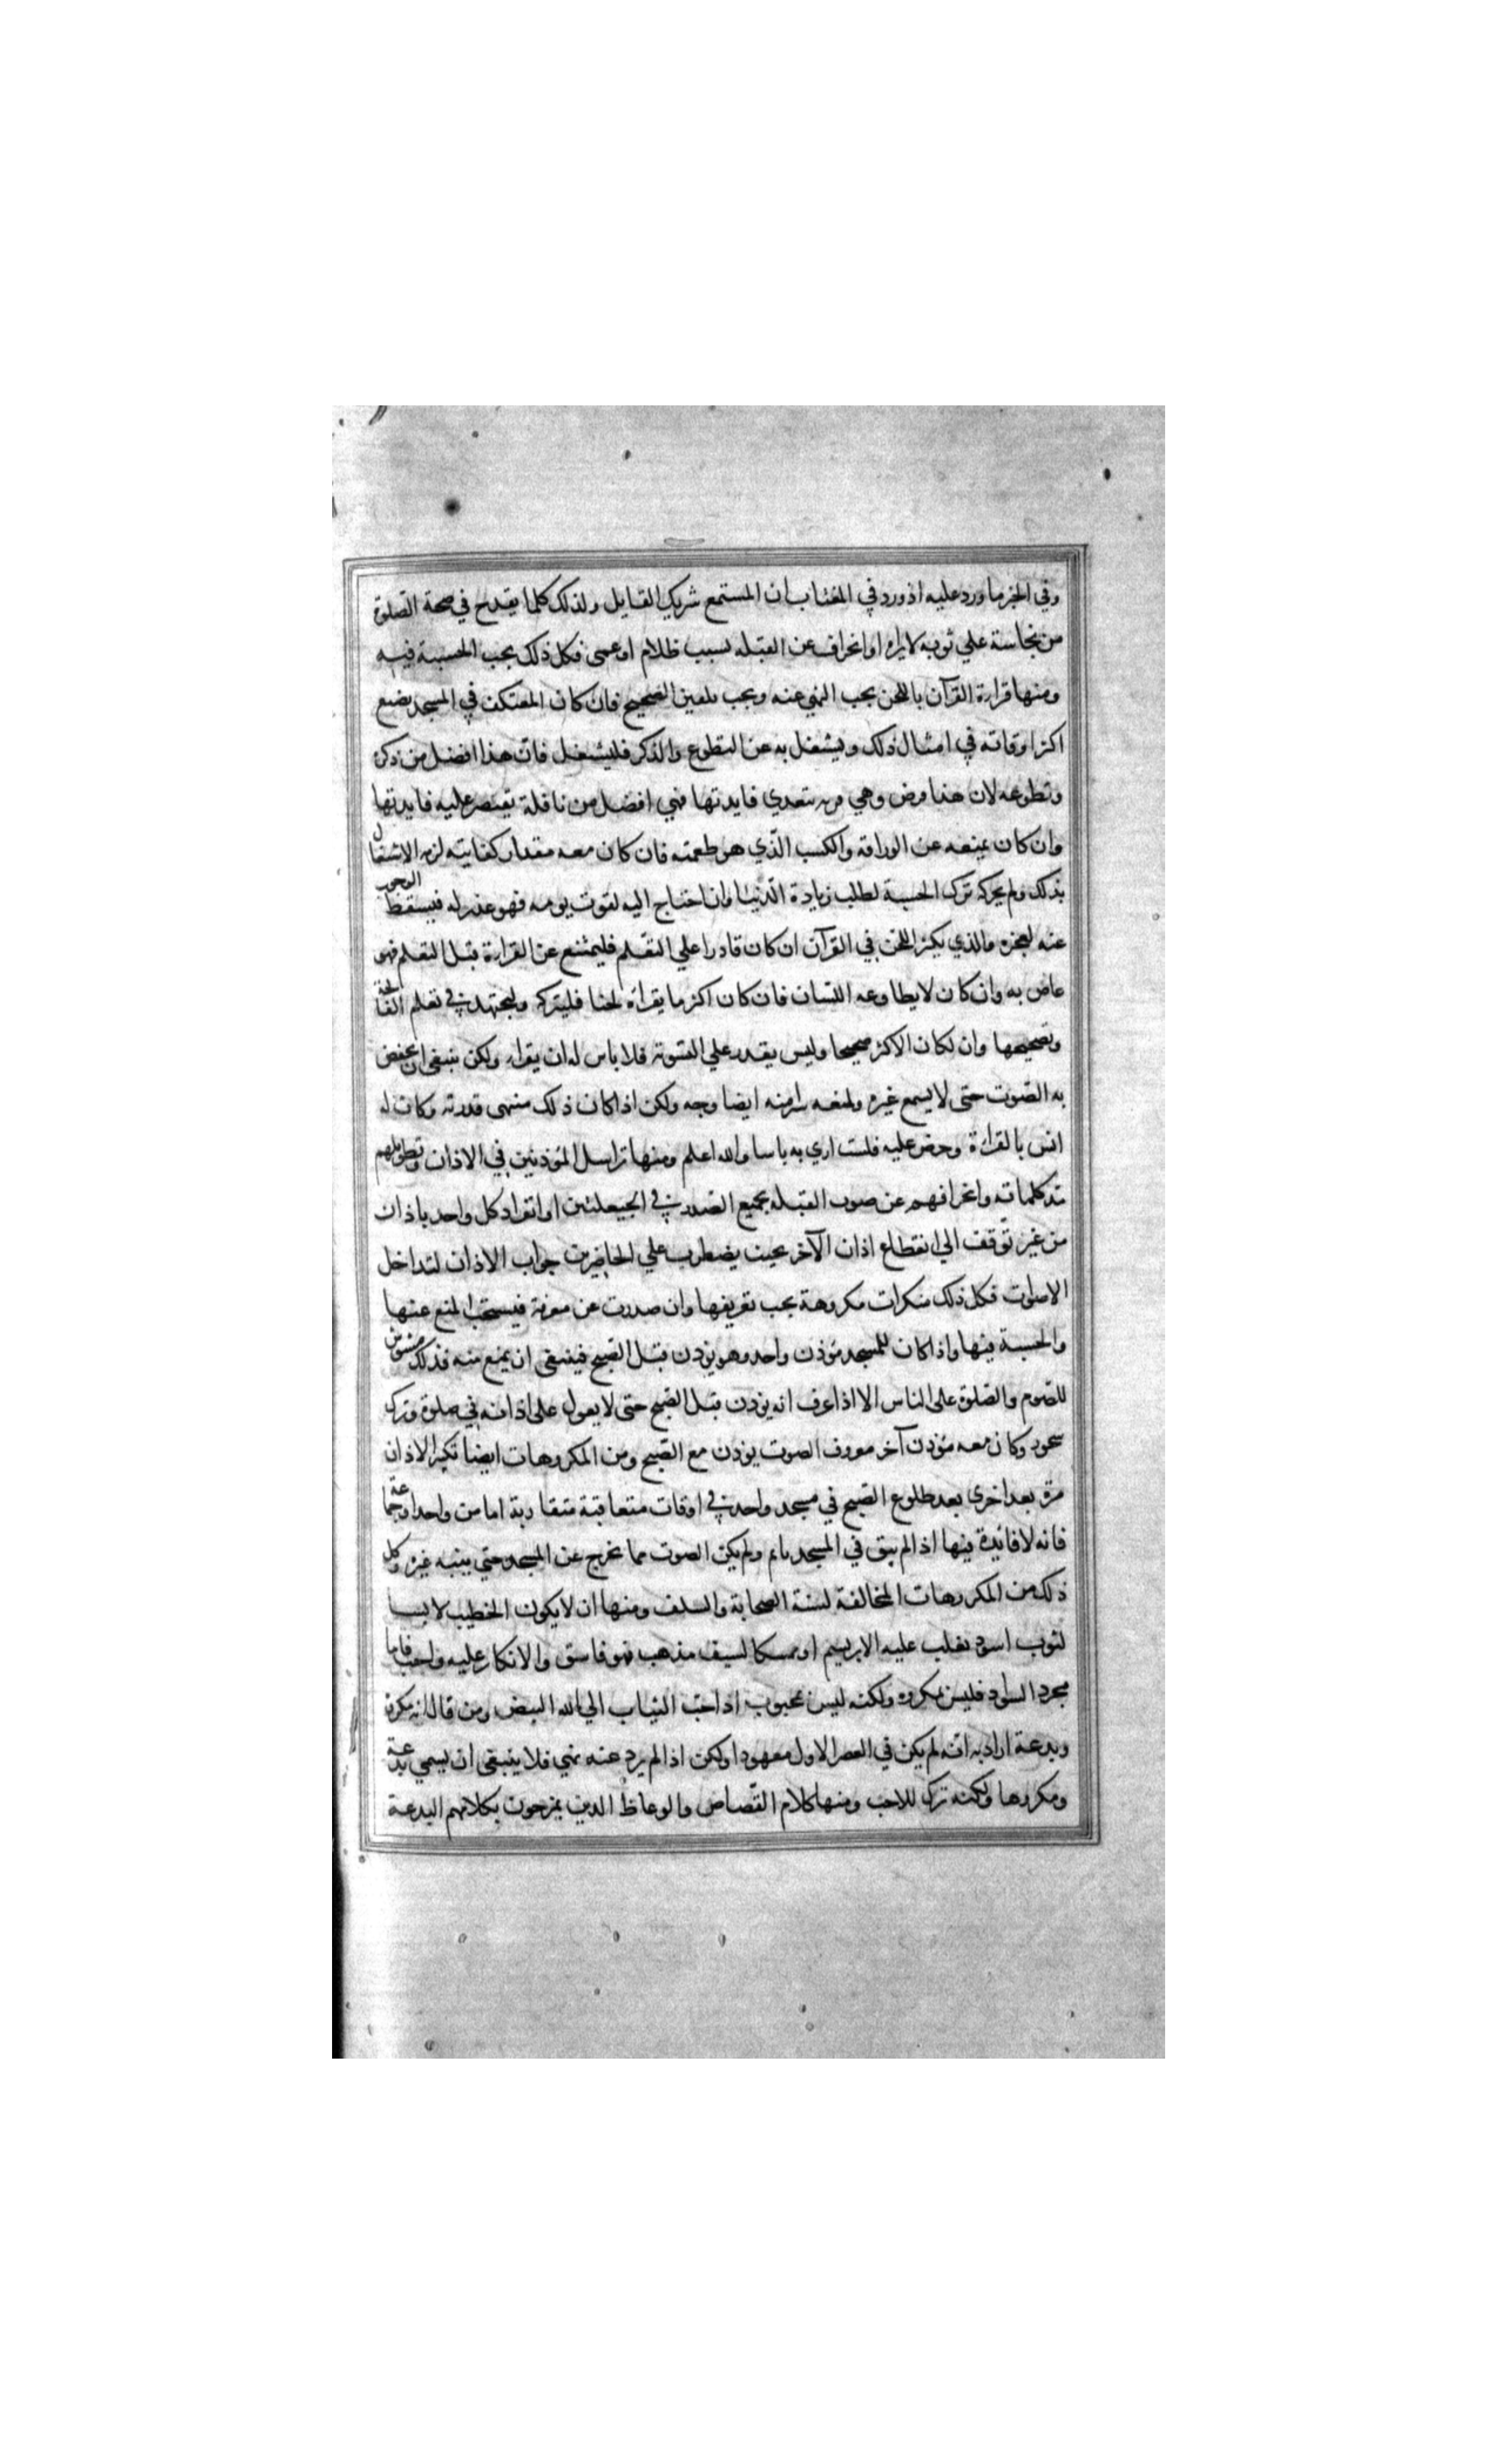 وفي الخبر ما ورد عليه اذ ورد في المغتاب ان المستمع شريك القايل ولذلك كلما يقدح في صحة الصلوة
من نجاسة علي ثوبه لا يراه او انحراف عن القبله لسبب ظلام او عمى فكل ذلك يجب الحسبة فيه
ومنها قرارة القرآن باللحن يجب النهي عنه ويجب تلقين الصحيح فان كان المعتكف في المسجد يضيع
اكثر اوقاته في امثال ذلك ويشغل به عن التطوع والذكر فليشغل فان هذا افضل من ذكره
وتطوعه لان هذا فرض وهي قربه تتعدي فايدتها فهي افضل من نافلة تقتصر عليه فايدتها
وان كان يمنعه عن الوراقه والكسب الذي هو طعمته فان كان معه مقدار كفايته لزمه الاشتغال
بذلك ولم يجز له ترك الحسبة لطلب زيادة الدنيا وان احتاج اليه لقوت يومه فهو عذر له فيسقط الوجوب
عنه لعجزه والذي يكثر اللحن في القرآن ان كان قادرا علي التعلم فليمتنع عن القرارة قبل التعلم فهو
عاص به وان كان لا يطاوعه اللسان فان كان اكثر ما يقراه لحنا فليتركه وليجتهد في تعلم الفاتحة
وتصحيحها وان لكان الاكثر صحيحا وليس يقدر علي التسوية فلا باس له ان يقراه ولكن ينبغي ان يخفض
به الصوت حتى لا يسمع غيره ولمنعه سرا منه ايضا وجه ولكن اذا كان ذلك منتهى قدرته وكان له
انس بالقراءة وحرص عليه فلست اري به باسا والله اعلم ومنها تراسل المؤذنين في الاذان وتطويلهم
بمد كلماته وانحرافهم عن صوب القبله بجميع الصدر في الحيعلتين او انفراد كل واحد باذان
من غير توقف الي انقطاع اذان الآخر بحيث يضطرب علي الحاضرين جواب الاذان لتداخل
الاصوات فكل ذلك منكرات مكروهة يجب تعريفها وان صدرت عن معرفة فيستحب المنع عنها
والحسبة فيها واذا كان للمسجد مؤذن واحد وهو يؤذن قبل الصبح فينبغي ان يمنع منه فذلك مشوش
للصوم والصلوة على الناس الا اذا عرف انه يؤذن قبل الصبح حتى لا يعول على اذانه في صلوة وترك
سحور وكان معه مؤذن آخر معروف الصوت يؤذن مع الصبح ومن المكروهات ايضا تكثير الاذان
مرة بعد اخرى بعد طلوع الصبح في مسجد واحد في اوقات متعاقبة متقاربة اما من واحد او جماعة
فانه لا فائدة فيها اذا لم يبق في المسجد نائم ولم يكن الصوت مما يخرج عن المسجد حتى ينبه غيره وكل
ذلك من المكروهات المخالفة لسنة الصحابة والسلف ومنها ان لا يكون الخطيب لابسا
لثوب اسود يغلب عليه الابريسم او ممسكا لسيف مذهب فهو فاسق والانكار عليه واجب فاما
مجرد السواد فليس بمكروه ولكنه ليس بمحبوب اذ احب الثياب الي الله البيض ومن قال انه مكروه
وبدعة اراد به انه لم يكن في العصر الاول معهودا ولكن اذا لم يرد عنه نهي فلا ينبغي ان يسمي بدعة
ومكروها ولكنه ترك للاحب ومنها كلام القصاص والوعاظ الذين يمزجون بكلامهم البدعة